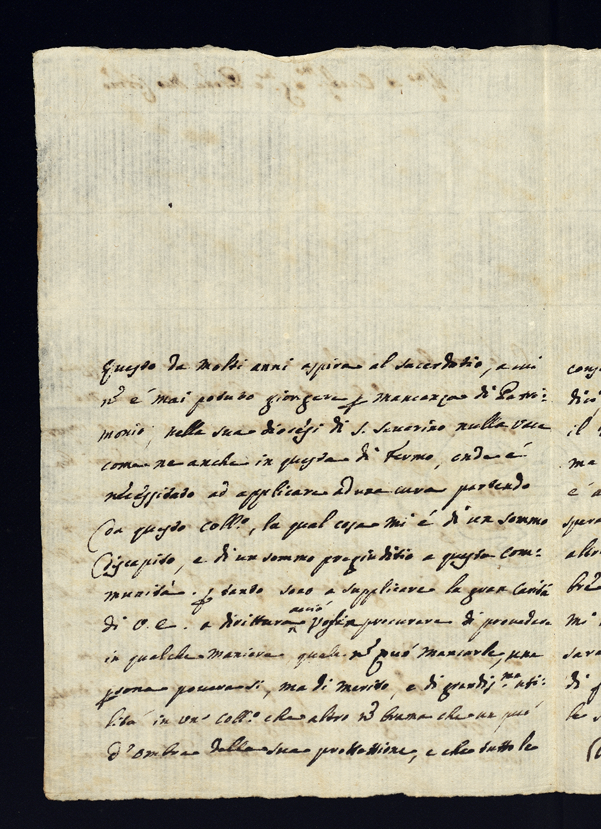 Questo da molti anni aspira al sacerdotio, a cui
nõ é mai potuto giongere p mancanza di Patri-
monio, nella sua diocési di S. Severino nulla
come ne anche in questa di Fermo, onde é
necéssitado ad applicare ad una cura partendo
da questo Coll.º, la qual cosa mi é di un sommo
discapito, e di un sommo pregiuditio a questa com-
munità. p tanto sono a supplicare la gran carità
di V. E. a dirittura acció voglia procurare di provedere
in qualche maniera quale nõ puó mancarle, una
psona povera si, ma di merito, e di grandiss.ma uti-
lità in un Coll.º che altro nõ brama che un puó
d'ombra della sua prottettione, e che tutto le
dici
il
ma
é a
spera
altro
mi
sara
di
le s